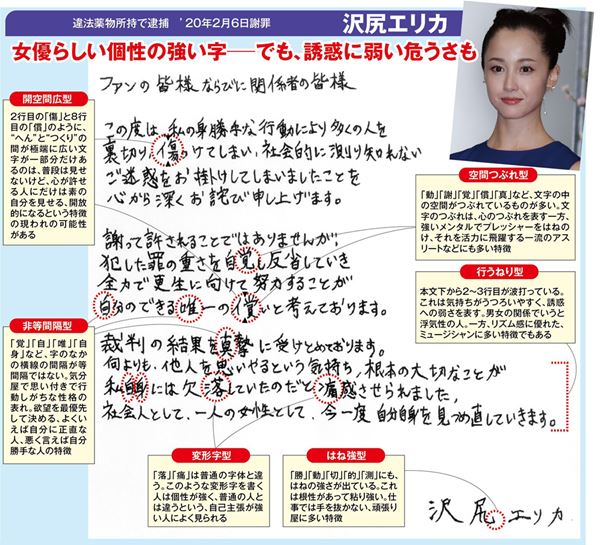 違法薬物所持で逮捕 ’20年2月6日謝罪
沢尻エリカ
女優らしい個性の強い字──でも、誘惑に弱い危うさも
ファンの皆様ならびに関係者の皆様
この度は、私の身勝手な行動により多くの人を
裏切り、傷つけてしまい、社会的に測り知れない
ご迷惑をお掛けしてしまいましたことを
心から深くお詫び申し上げます。
謝って許されることではありませんが、
犯した罪の重さを自覚し反省していき
全力で更生に向けて努力することが
自分のできる唯一の償いと考えております。
裁判の結果を真摯に受けとめております。
何よりも、他人を思いやるという気持ち、根本の大切なことが
私自身には欠落していたのだと痛感させられました。
社会人として、一人の女性として、今一度自分自身を見つめ直していきます。
沢尻エリカ
開空間広型
2行目の「傷」と8行
目の「償」のように、
“へん”と“つくり”の
間が極端に広い文
字が一部分だけあ
るのは、普段は見せ
ないけど、心が許せ
る人にだけは素の
自分を見せる、開放
的になるという特徴
の現われの可能性
がある
非等間隔型
「覚」「自」「唯」「自
身」など、字のなか
の横線の間隔が等
間隔ではない。気分
屋で思い付きで行
動しがちな性格の
表れ。欲望を最優先
して決める、よくい
えば自分に正直な
人、悪く言えば自分
勝手な人の特徴
空間つぶれ型
「動」「謝」「覚」「償」「真」など、文字の中
の空間がつぶれているものが多い。文字
のつぶれは、心のつぶれを表す一方、
強いメンタルでプレッシャーをはねの
け、それを活力に飛躍する一流のアス
リートなどにも多い特徴
行うねり型
本文下から2～3行目が波打っている。
これは気持ちがうつろいやすく、誘惑
への弱さを表す。男女の関係でいうと
浮気性の人。一方、リズム感に優れた、
ミュージシャンに多い特徴でもある
変形字型
「落」「痛」は普通の字体と違
う。このような変形字を書く
人は個性が強く、普通の人と
は違うという、自己主張が強
い人によく見られる
はね強型
「勝」「動」「切」「的」「測」にも、
はねの強さが出ている。これ
は根性があって粘り強い。仕
事では手を抜かない、頑張り
屋に多い特徴